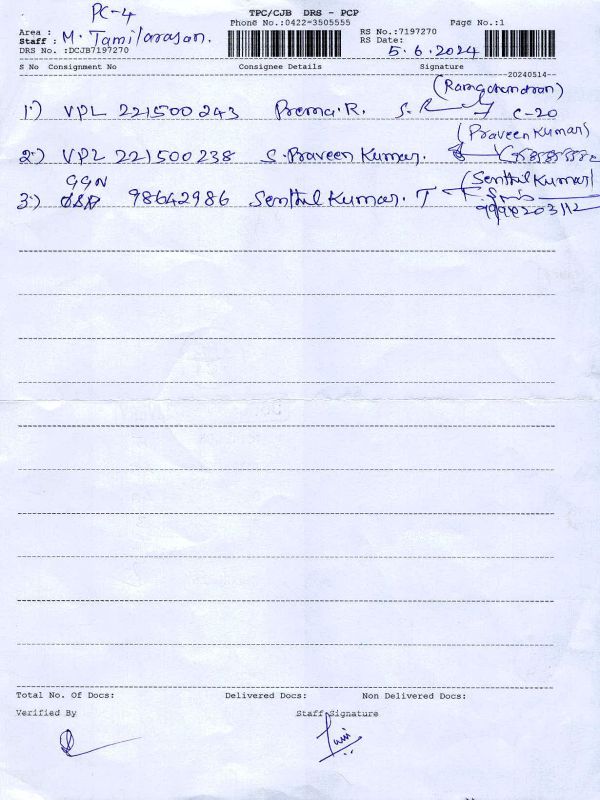 PC-4
TPC/CJB DRS - PCP
Phone No.:0422-3505555 Page No.:1
Area :
Staff : M. Tamilarasan. RS No.:7197270
RS Date: 5.6.2024
DRS No. :DCJB7197270
S No Consignment No Consignee Details Signature
--20240514--
(Ramachandran)
1.) VPL 221500243 Prema.R. C-20
(Praveen Kumar)
2.) VPL 221500238 S. Praveen Kumar.
GGN (Senthil Kumar)
3.) 98642986 Senthil Kumar. T
Total No. Of Docs: Delivered Docs: Non Delivered Docs:
Verified By Staff Signature